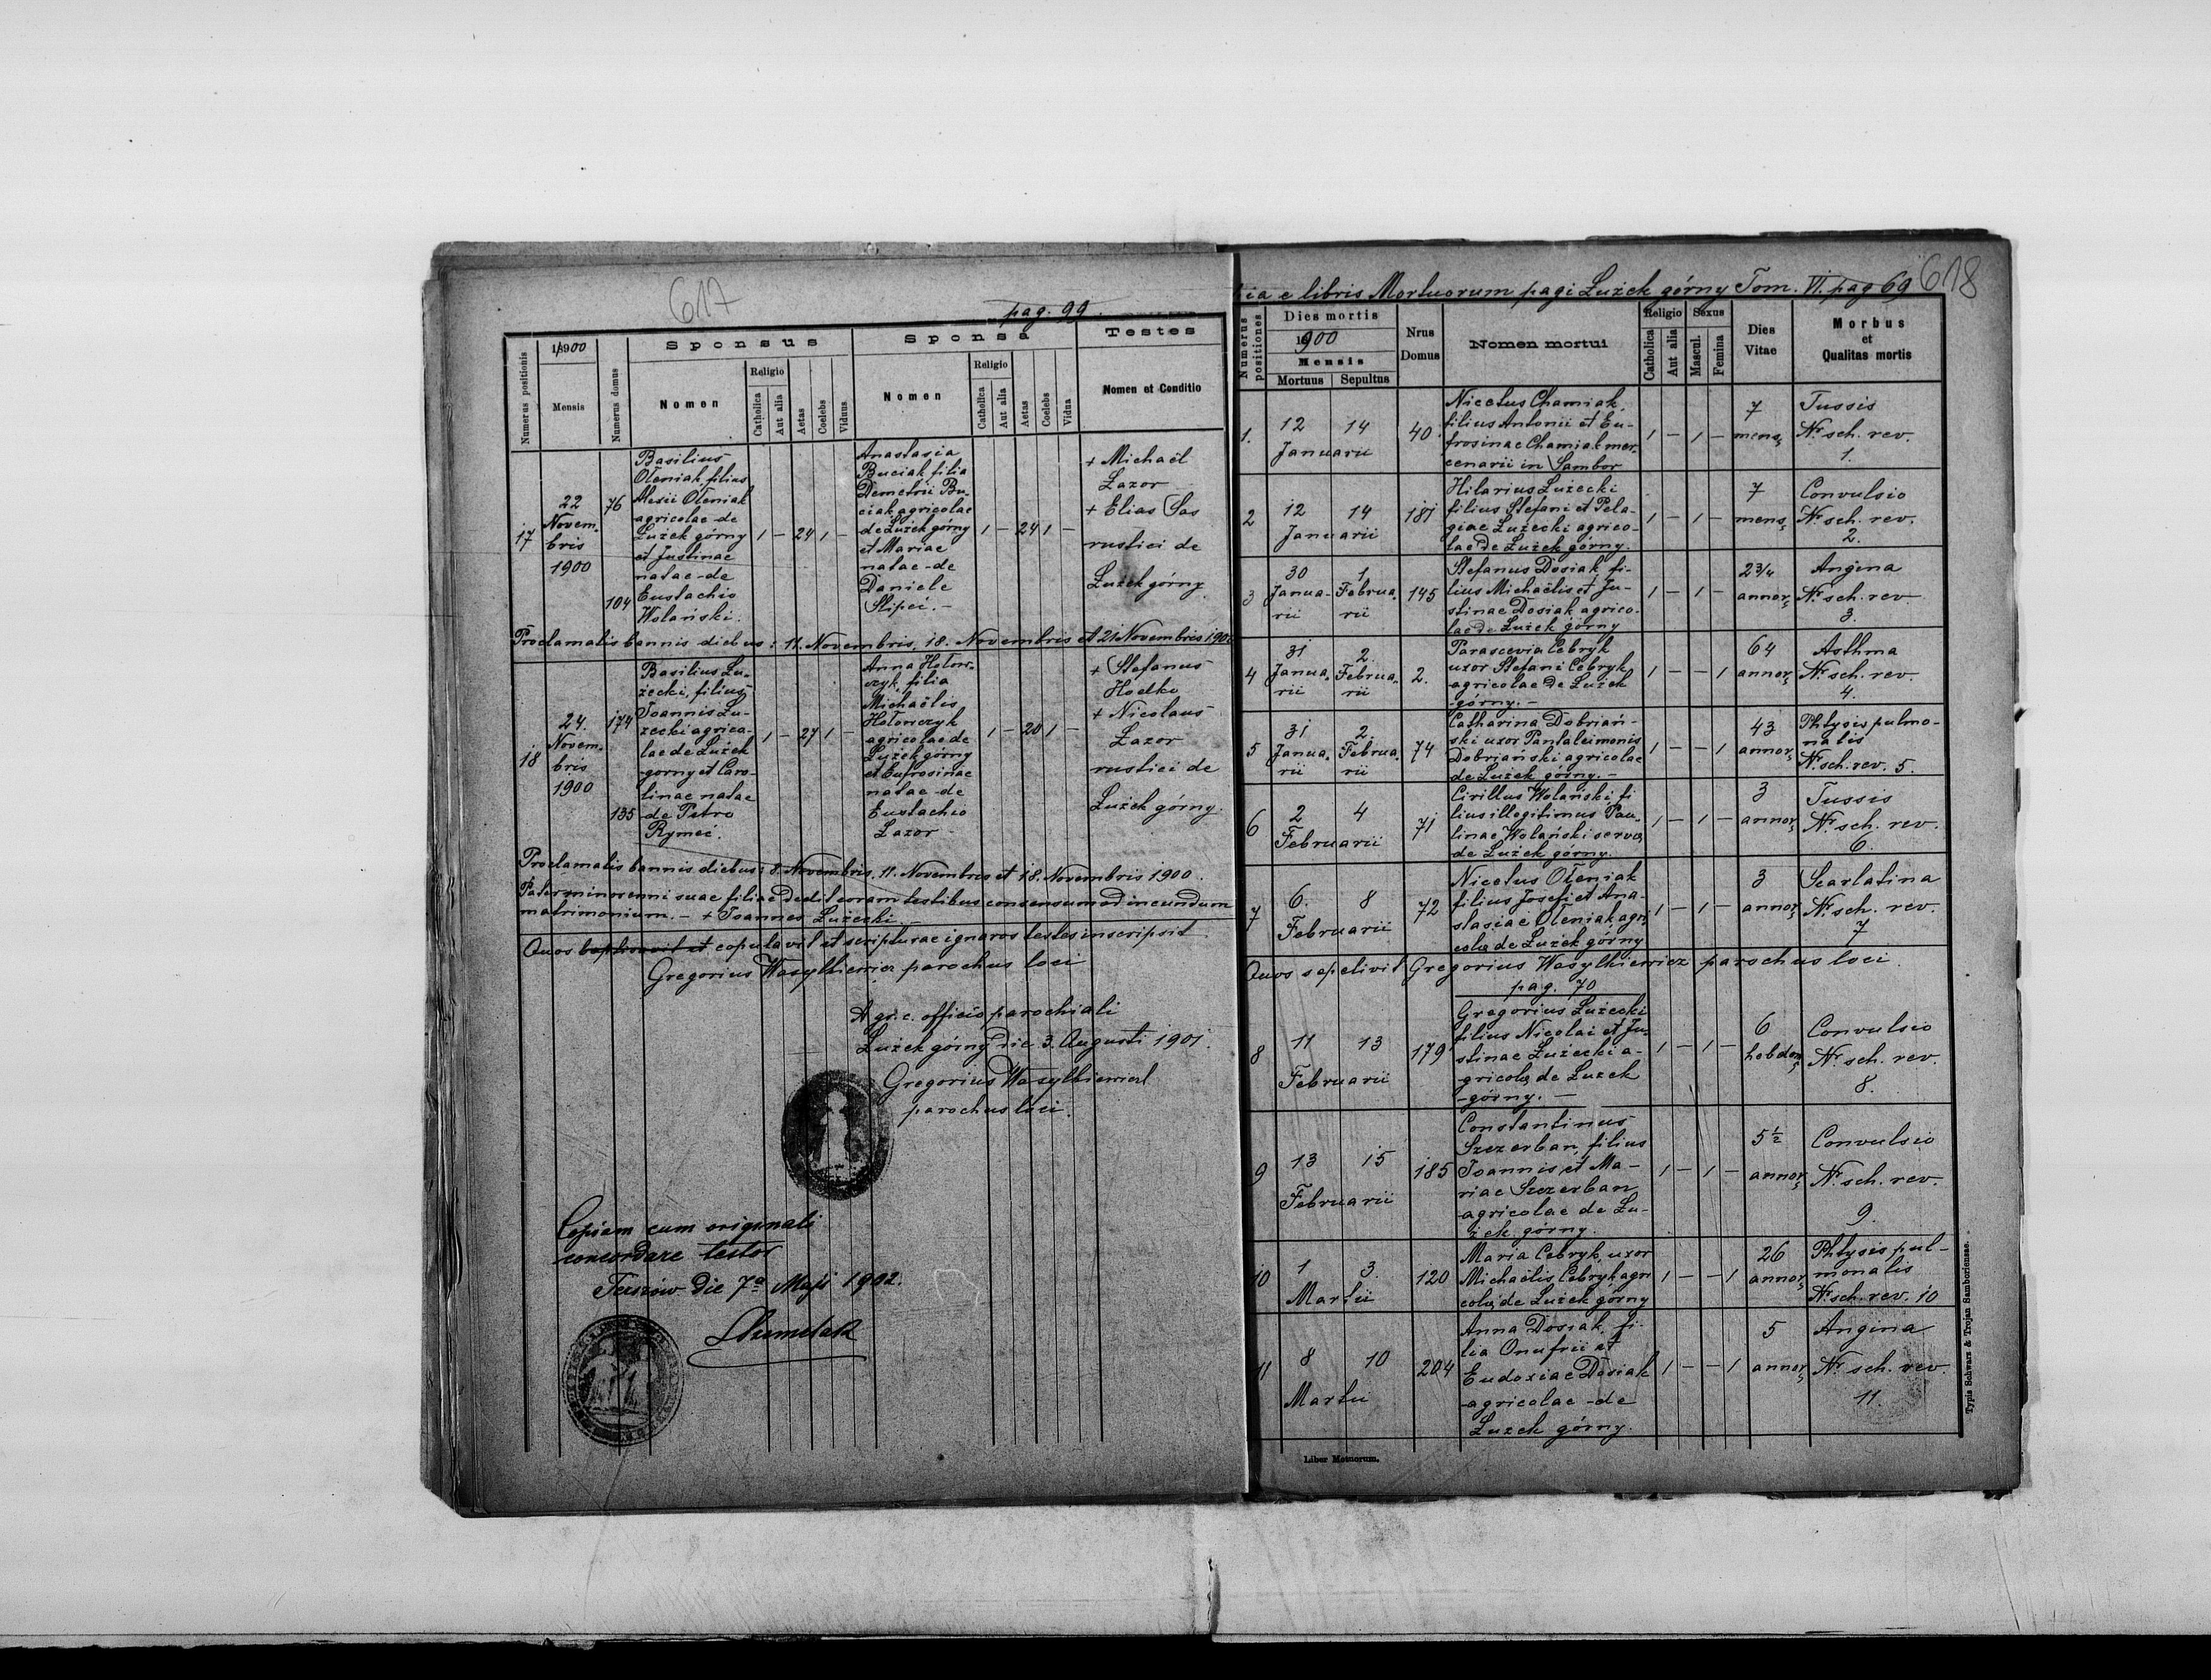 617
pag. 99
Numerus positionis
1900
Mensis
Numerus domus
Sponsus
Nomen
Religio
Catholica
Aut alia
Aetas
Coelebs
Viduus
Sponsa
Nomen
Religio
Catholica
Aut alia
Aetas
Coelebs
Vidua
Testes
Nomen et Conditio
17
22
Novem-
bris
1900
76
104
Basilius
Oleniak, filius
Alexii Oleniak
agricolae de
Łużek górny
et Justinae
natae de
Eustachio
Wolański.
1 — 24 1 —
Anastasia
Buciak filia
Demetrii Bu-
ciak agricolae
de Łużek górny
et Mariae
natae de
Daniele
Slipci. —
1 — 24 1 —
+ Michaël
Łazor
+ Elias Sas
rustici de
Łużek górny
Proclamatis bannis diebus: 11. Novembris, 18. Novembris et 21 Novembris 1900
18
24.
Novem-
bris
1900
174
135
Basilius Łu-
żecki, filius
Joannis Łu-
żecki agrico-
lae de Łużek
gorny et Caro-
linae natae
de Petro
Rymeć.
1 — 27 1 —
Anna Hołow-
czyk, filia
Michaëlis
Hołowczyk
agricolae de
Łużek górny
et Eufrosinae
natae de
Eustachio
Łazor —
1 — 20 1 —
+ Stefanus
Hodko
+ Nicolaus
Łazor
rustici de
Łużek górny.
Proclamatis bannis diebus: 8. Novembris, 11. Novembris et 18. Novembris 1900.
Pater minorenni suae filiae dedit coram testibus consensum ad incundum
matrimonium. — + Joannes Łużecki. —
Quos baptisavit et copulavit et scripturae ignaros testes inscripsit
Gregorius Wasylkiewicz parochus loci
A gr. c. officio parochiali
Łużek górny die 3. Augusti 1901.
Gregorius Wasylkiewicz
parochus loci.
Copiam cum originali
concordare testor
die 7a Maji 1902.
618
e libris Mortuorum pagi Łużek górny Tom. VI. pag 69
Numerus positiones
Dies mortis
1900
Mensis
Mortuus
Sepultus
Nrus Domus
Nomen mortui
Religio
Catholica
Aut alia
Sexus
Mascul.
Femina
Dies Vitae
Morbus
et
Qualitas mortis
1.
12 14
Januarii
40
Nicetus Chamiak,
filius Antonii et Eu-
frosinae Chamiak mer-
cenarii in Sambor
1 — 1 —
7
mens,
Tussis
Nr. sch. rev.
1.
2
12 14
Januarii
181
Hilarius Łużecki
filius Stefani et Pela-
giae Łużecki agrico-
lae de Łużek górny.
1 — 1 —
7
mens,
Convulsio
Nr. sch. rev.
2.
3
30 1
Janua- Februa-
rii rii
145
Stefanus Dosiak fi-
lius Michaëlis et Ju-
stinae Dosiak agrico-
lae de Łużek górny
1 — 1 —
2 3/4
annor,
Angina
Nr. sch. rev
3.
4
31 2.
Janua- Februa-
rii rii
2.
Parascevia Cebryk
uxor Stefani Cebryk,
agricolae de Łużek
górny. —
1 — — 1
64
annor,
Asthma
Nr. sch. rev.
4.
5
31 2.
Janua- Februa-
rii rii
74
Catharina Dobriań-
ski uxor Pantaleimonis
Dobriański agricolae
de Łużek górny. —
1 — — 1
43
annor,
Phtysis pulmo-
nalis
Nr. sch. rev. 5.
6
2 4
Februarii
71
Cirillus Wolański fi
lius illegitimus Pau-
linae Wolański servae
de Łużek górny.
1 — 1 —
3
annor,
Tussis
Nr. sch. rev.
6.
7
6. 8
Februarii
72
Nicetus Oleniak
filius Josefi et Ana-
stasiae Oleniak agri
colae de Łużek górny
1 — 1 —
3
annor,
Scarlatina
Nr. sch. rev.
7
Quos sepelivit Gregorius Wasylkiewicz parochus loci.
pag. 70
8
11 13
Februarii
179
Gregorius Łużecki
filius Nicolai et Ju-
stinae Łużecki a-
gricolae de Łużek
górny. —
1 — 1 —
6
hebdom,
Convulsio
Nr. sch. rev.
8.
9
13 15
Februarii
185
Constantinus
Szczerban, filius
Joannis et Ma-
riae Szczerban
agricolae de Łu-
żek górny.
1 — 1 —
5 1/2
annor,
Convulsio
Nr. sch. rev.
9.
10
1 3.
Martii
120
Maria Cebryk, uxor
Michaëlis Cebryk agri
colae de Łużek górny
1 — — 1
26
annor,
Phtysis pul-
monalis
Nr. sch. rev. 10
11
8 10
Martii
204
Anna Dosiak, fi-
lia Onufrii et
Eudoxiae Dosiak
agricolae de
Łużek górny.
1 — — 1
5
annor,
Angina
Nr. sch. rev.
11.
Liber Motuorum.
Typis Schwarz & Trojan Samboriensae.